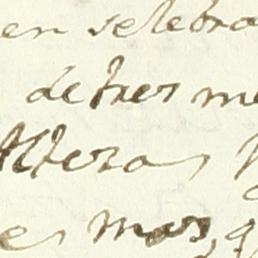 en seletra
de tres me
lteras
es mas, q